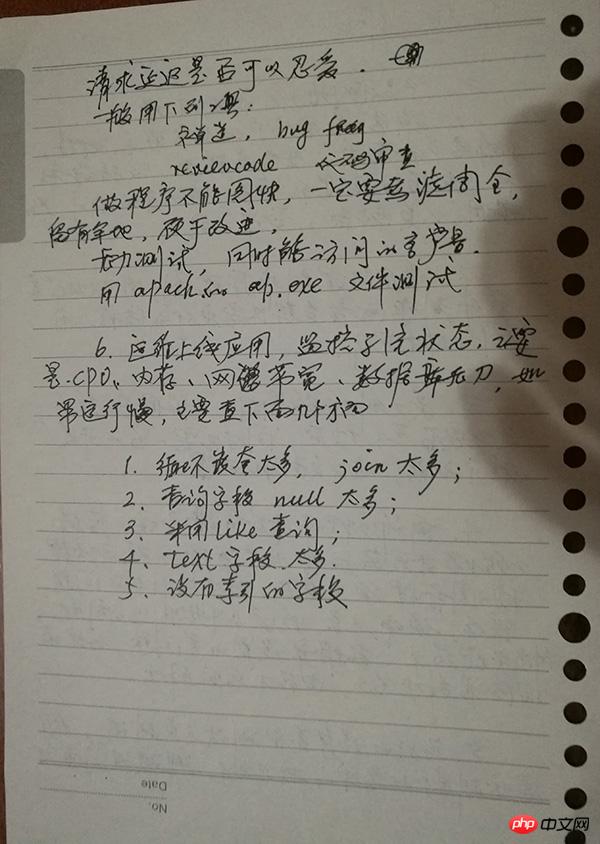 请求延迟是否可以忍受.
一般用下列工具:
禅道, bug free
reviewcode 代码审查
做程序不能图快, 一定要考虑周全,
留有余地, 便于改进.
压力测试, 同时能访问的
用 apach ab.exe 文件测试
6. 运维上线应用, 监控系统状态, 主要
是.CPU、内存、网络带宽、数据库压力, 如
果运行慢, 主要查下面几个方面
1. 嵌套太多, join 太多;
2. 查询字段 null 太多;
3. 采用like 查询;
4、text 字段 太多.
5、没有索引的字段
Date
No.
php 中文网